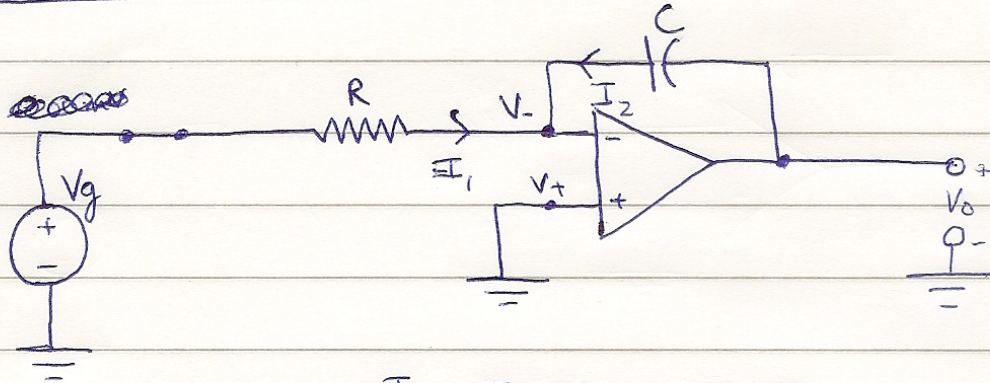 C
R
V-
I₂
-
I₁
Vg
V+
+
+
+
Vo
-
-